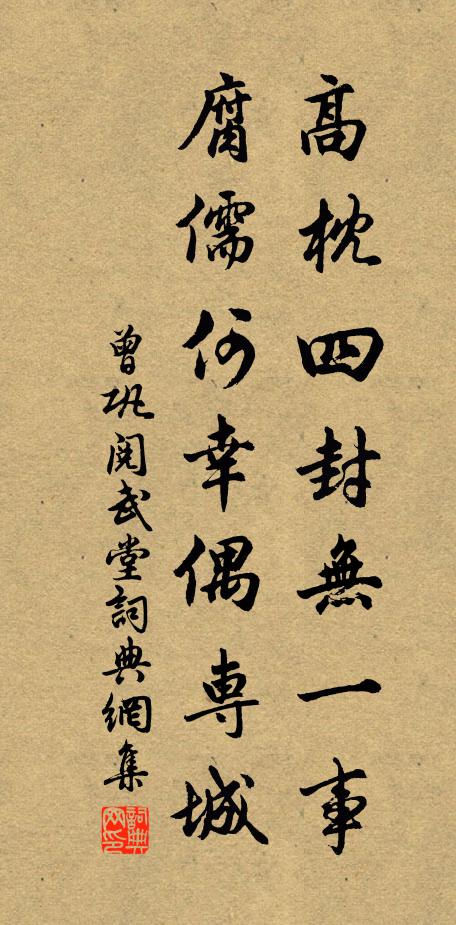 高枕四封無一事
腐儒何幸偶専城
曾巩閱武堂詞典網集
詞典網印